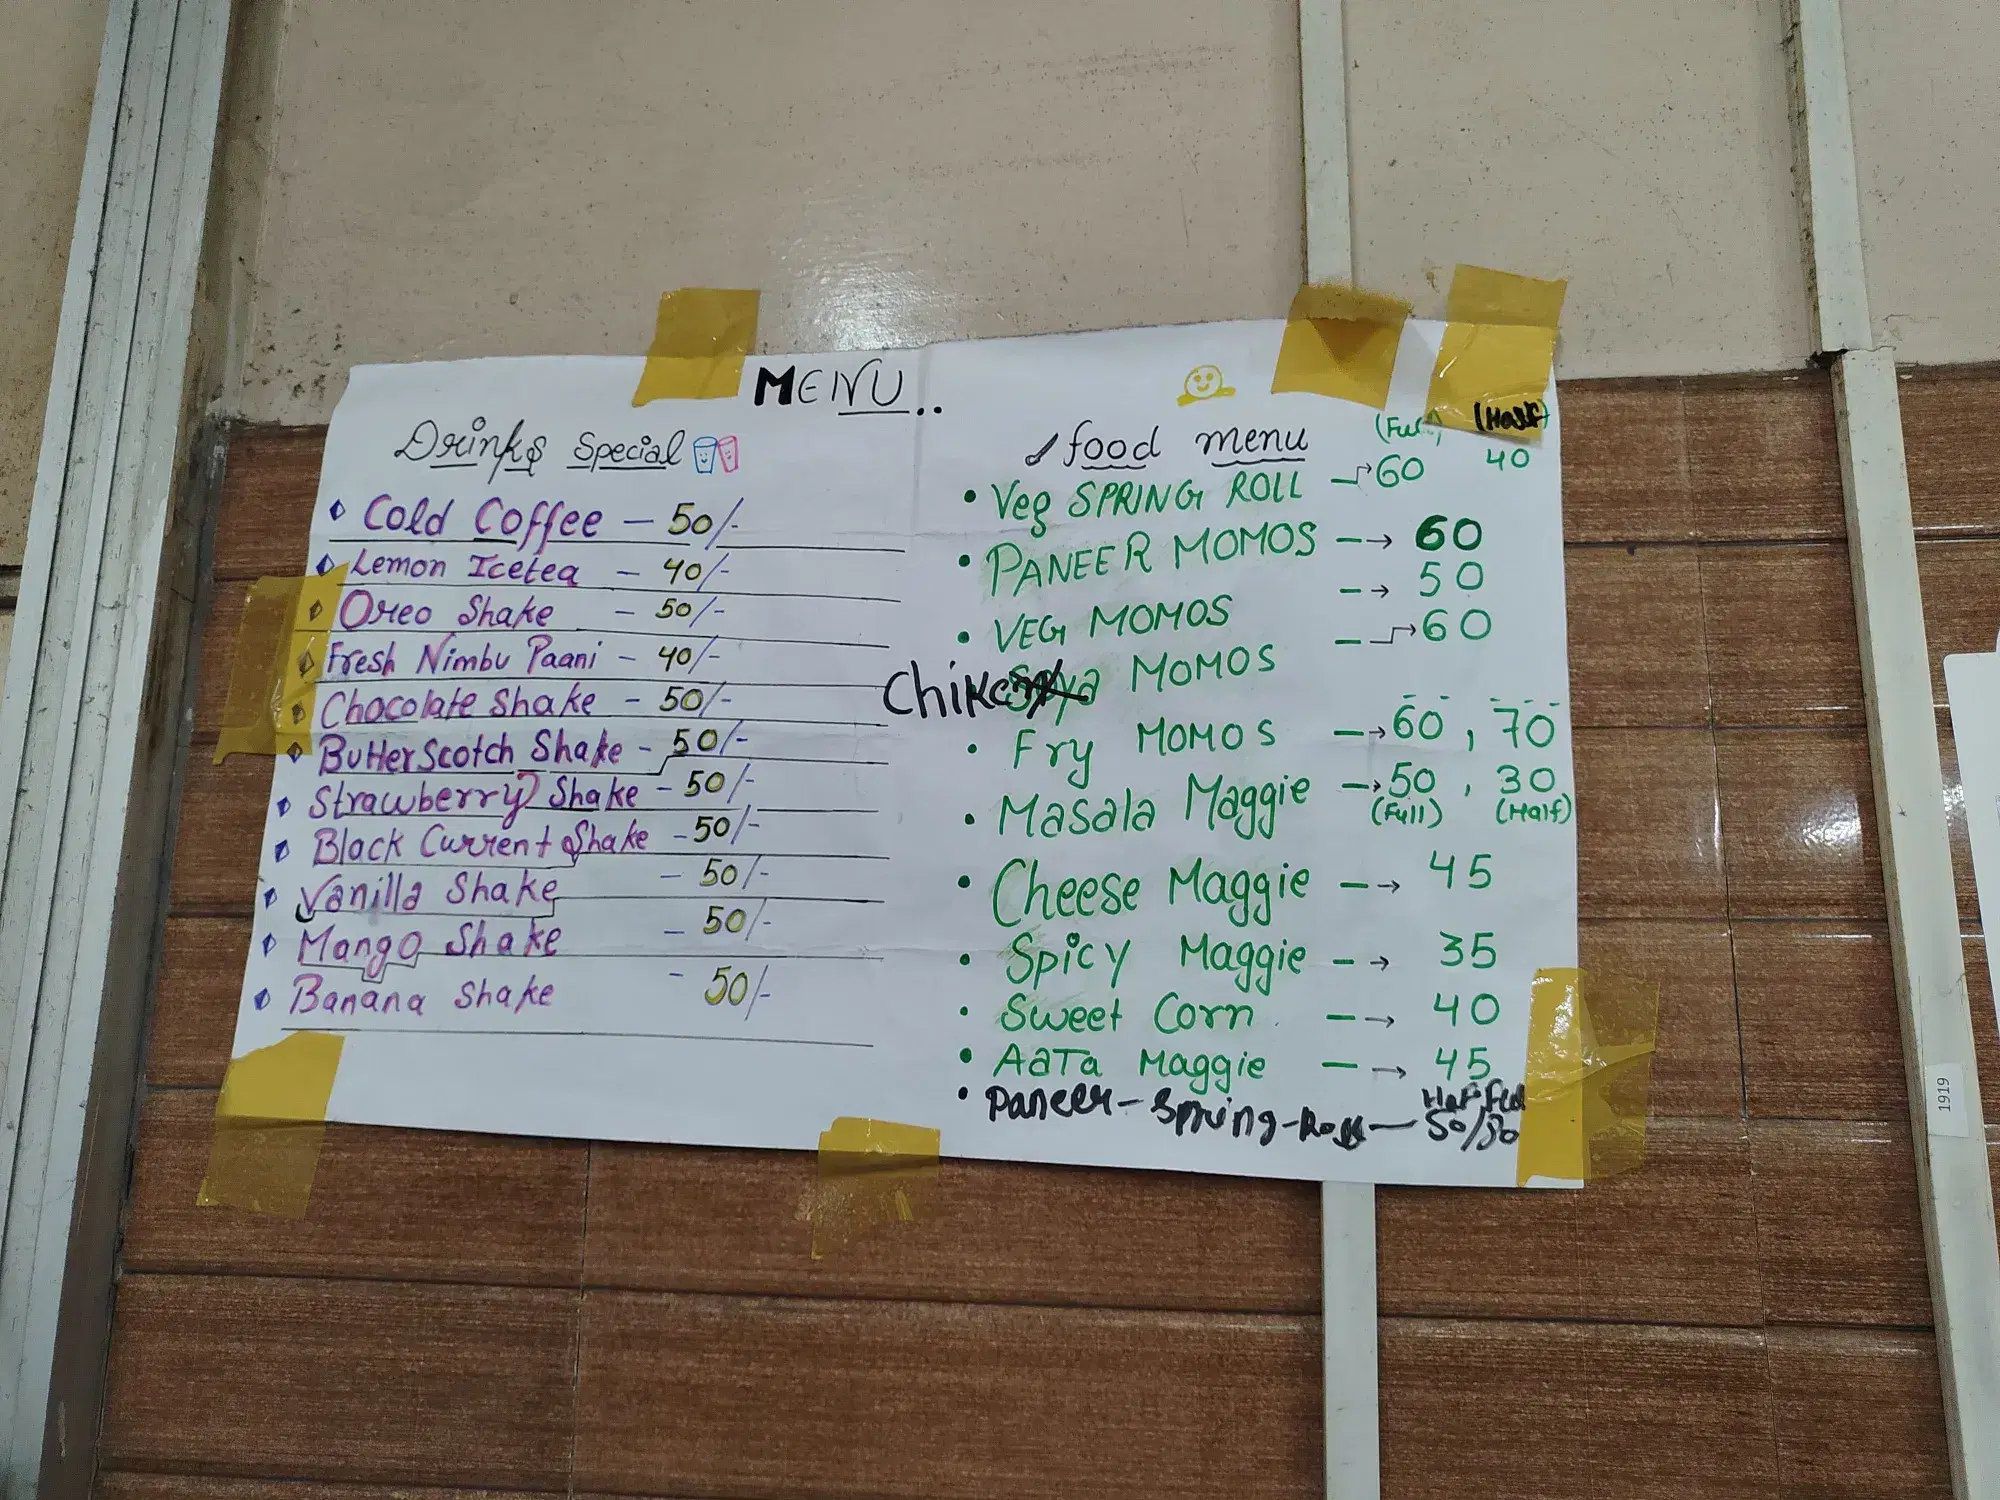 MENU..
Drinks Special
Cold Coffee - 50/-
Lemon Icetea - 40/-
Oreo Shake - 50/-
Fresh Nimbu Paani - 40/-
Chocolate Shake - 50/-
Butterscotch Shake - 50/-
Strawberry Shake - 50/-
Black Current Shake - 50/-
Vanilla Shake - 50/-
Mango Shake - 50/-
Banana Shake - 50/-
food menu (Full) (Half)
• Veg SPRING ROLL → 60 40
• PANEER MOMOS → 60
• VEG MOMOS → 50
Chiken Soya MOMOS → 60
• Fry MOMOS → 60, 70
• Masala Maggie → 50, 30
(Full) (Half)
• Cheese Maggie → 45
• Spicy Maggie → 35
• Sweet Corn → 40
• AaTa Maggie → 45
Haf Full
• Paneer-Spring-Roll - 50/80
1919